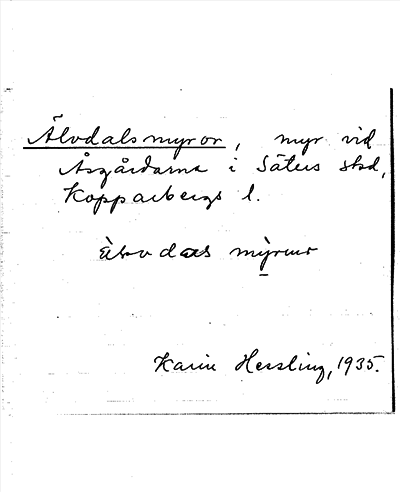 Älvdalsmyror, myr vid
Åsgårdarna i Säters stad,
Kopparbergs l.
mỳrur
Karin Hessling, 1935.